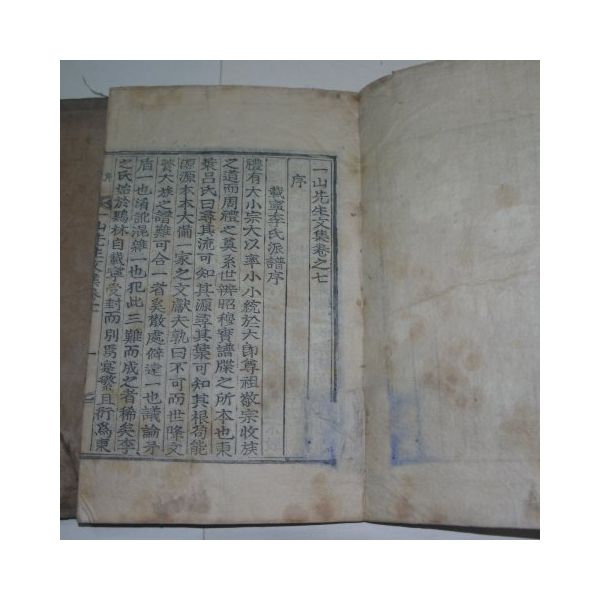 一山先生文集卷之七
序
載寧李氏派譜序
禮有大小宗大以率小小統於大卽尊祖敬宗收族
之道而周禮之奠系世辨昭穆實譜牒之所本也東
萊呂氏曰尋其流可知其源尋其葉可知其根苟能
源源本本大備一家之文獻夫孰曰不可而世降文
之譜難可合一者矣散處僻遠一也議論矛
盾一也譌訛混雜一也犯此三難而成之者稀矣李
之氏始於鷄林自載寧受封而別爲寔繁且衍爲東
一山先生文集卷七